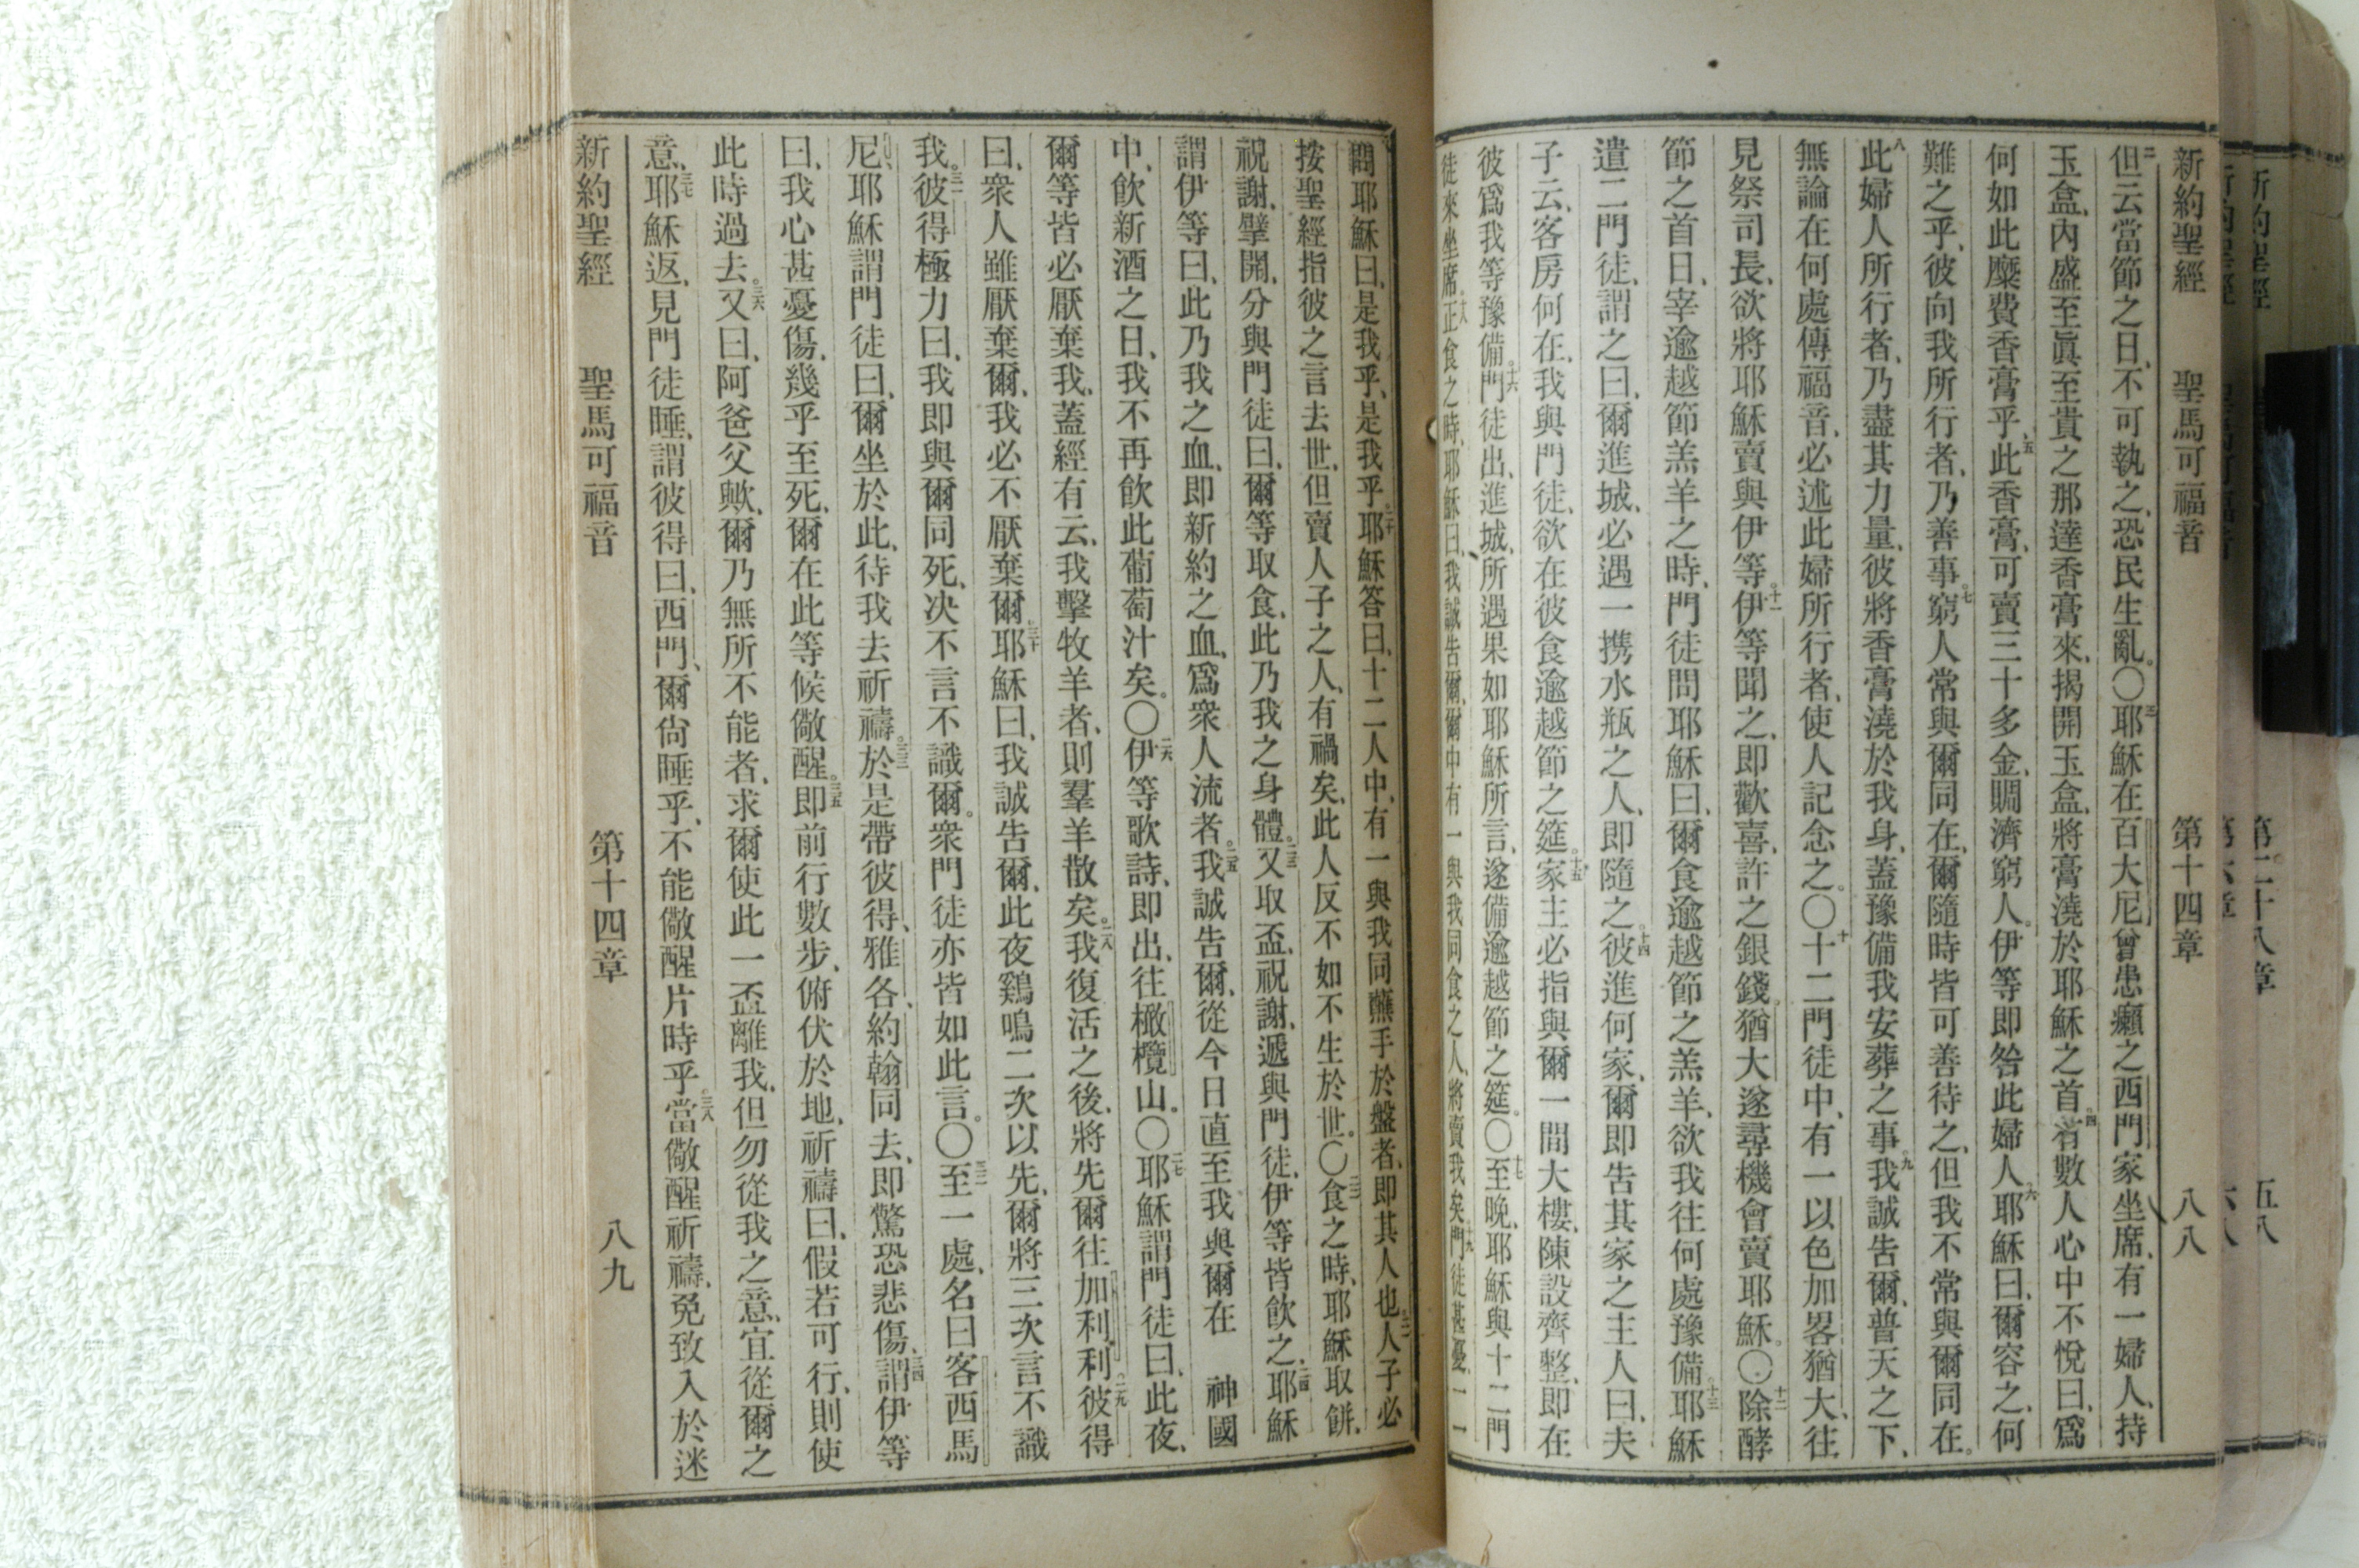 新約聖經 聖馬可福音 第十四章 八八
二但云當節之日、不可執之、恐民生亂。〇三耶穌在百大尼曾患癩之西門家坐席、有一婦人、持
玉盒、內盛至眞至貴之那達香膏來、揭開玉盒、將膏澆於耶穌之首。四有數人心中不悅曰、爲
何如此糜費香膏乎、五此香膏、可賣三十多金、賙濟窮人。伊等卽咎此婦人、六耶穌曰、爾容之、何
難之乎、彼向我所行者、乃善事、七窮人常與爾同在、爾隨時皆可善待之、但我不常與爾同在。
八此婦人所行者、乃盡其力量、彼將香膏澆於我身、蓋豫備我安葬之事。九我誠告爾、普天之下、
無論在何處傳福音、必述此婦所行者、使人記念之。〇十十二門徒中、有一以色加畧猶大、往
見祭司長、欲將耶穌賣與伊等。十一伊等聞之、卽歡喜、許之銀錢、猶大遂尋機會賣耶穌。〇十二除酵
節之首日、宰逾越節羔羊之時、門徒問耶穌曰、爾食逾越節之羔羊、欲我往何處豫備。十三耶穌
遣二門徒、謂之曰、爾進城、必遇一携水瓶之人、卽隨之。十四彼進何家、爾卽告其家之主人曰、夫
子云、客房何在、我與門徒、欲在彼食逾越節之筵。十五家主必指與爾一間大樓、陳設齊整、卽在
彼爲我等豫備。十六門徒出、進城、所遇果如耶穌所言、遂備逾越節之筵。〇十七至晚、耶穌與十二門
徒來坐席。十八正食之時、耶穌曰、我誠告爾、爾中有一與我同食之人、將賣我矣。十九門徒甚憂、一一
問耶穌曰、是我乎、是我乎。二十耶穌答曰、十二人中、有一與我同蘸手於盤者、卽其人也。二一人子必
按聖經指彼之言去世、但賣人子之人、有禍矣、此人反不如不生於世。〇二二食之時、耶穌取餅、
祝謝、擘開、分與門徒曰、爾等取食、此乃我之身體。二三又取盃、祝謝、遞與門徒、伊等皆飲之、二四耶穌
謂伊等曰、此乃我之血、卽新約之血、爲衆人流者。二五我誠告爾、從今日直至我與爾在 神國
中、飲新酒之日、我不再飲此葡萄汁矣。〇二六伊等歌詩、卽出、往橄欖山。〇二七耶穌謂門徒曰、此夜、
爾等皆必厭棄我、蓋經有云、我擊牧羊者、則羣羊散矣。二八我復活之後、將先爾往加利利。二九彼得
曰、衆人雖厭棄爾、我必不厭棄爾。三十耶穌曰、我誠告爾、此夜鷄鳴二次以先、爾將三次言不識
我。三一彼得極力曰、我卽與爾同死、決不言不識爾。衆門徒亦皆如此言。〇三二至一處、名曰客西馬
尼、耶穌謂門徒曰、爾坐於此、待我去祈禱。三三於是帶彼得、雅各、約翰同去、卽驚恐悲傷、三四謂伊等
曰、我心甚憂傷、幾乎至死、爾在此等候儆醒。三五卽前行數步、俯伏於地、祈禱曰、假若可行、則使
此時過去。三六又曰、阿爸父歟、爾乃無所不能者、求爾使此一盃離我、但勿從我之意、宜從爾之
意、三七耶穌返、見門徒睡、謂彼得曰、西門、爾尙睡乎、不能儆醒片時乎。三八當儆醒祈禱、免致入於迷
新約聖經 聖馬可福音 第十四章 八九